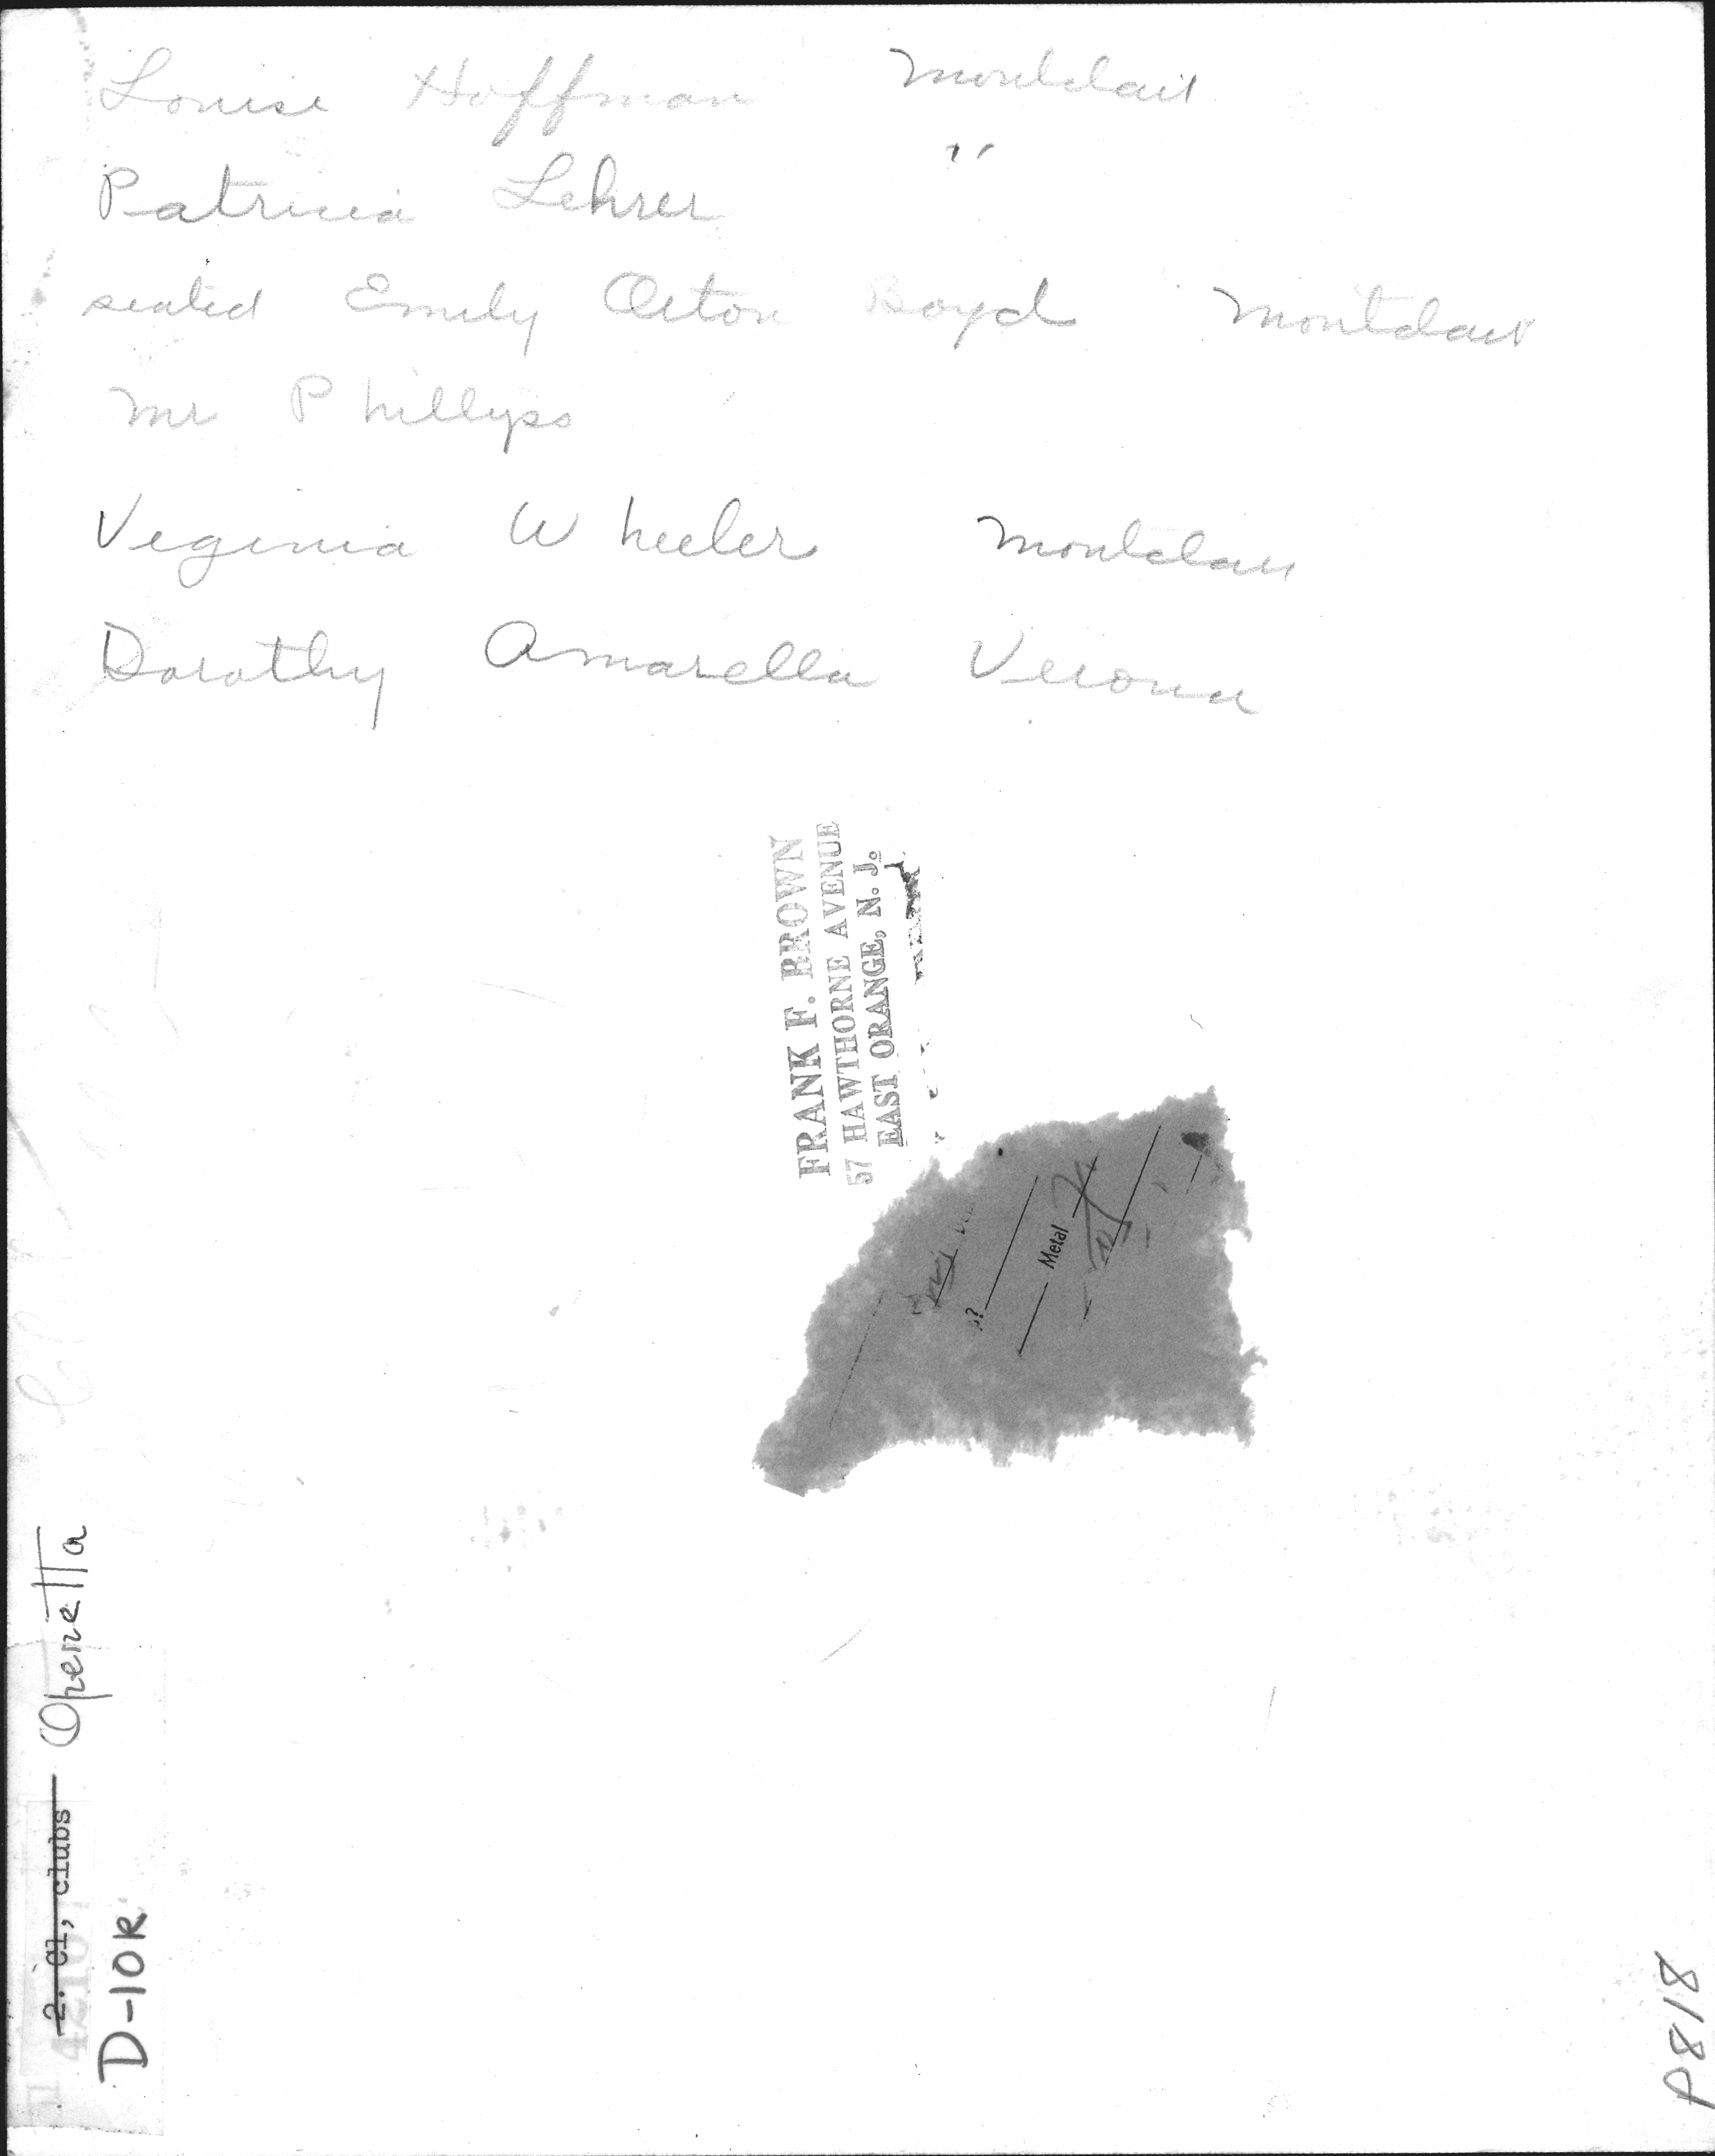 Louise Hoffman Montclair
Patricia Lehrer "
seated Emily Orton Boyd Montclair
Mr Phillyps
Veginia Wheeler Montclair
Dorothy Amarella Verona
FRANK F. BROWN
57 HAWTHORNE AVENUE
EAST ORANGE, N. J.
Metal
2. Cl, clubs Operetta
D-10R
P818